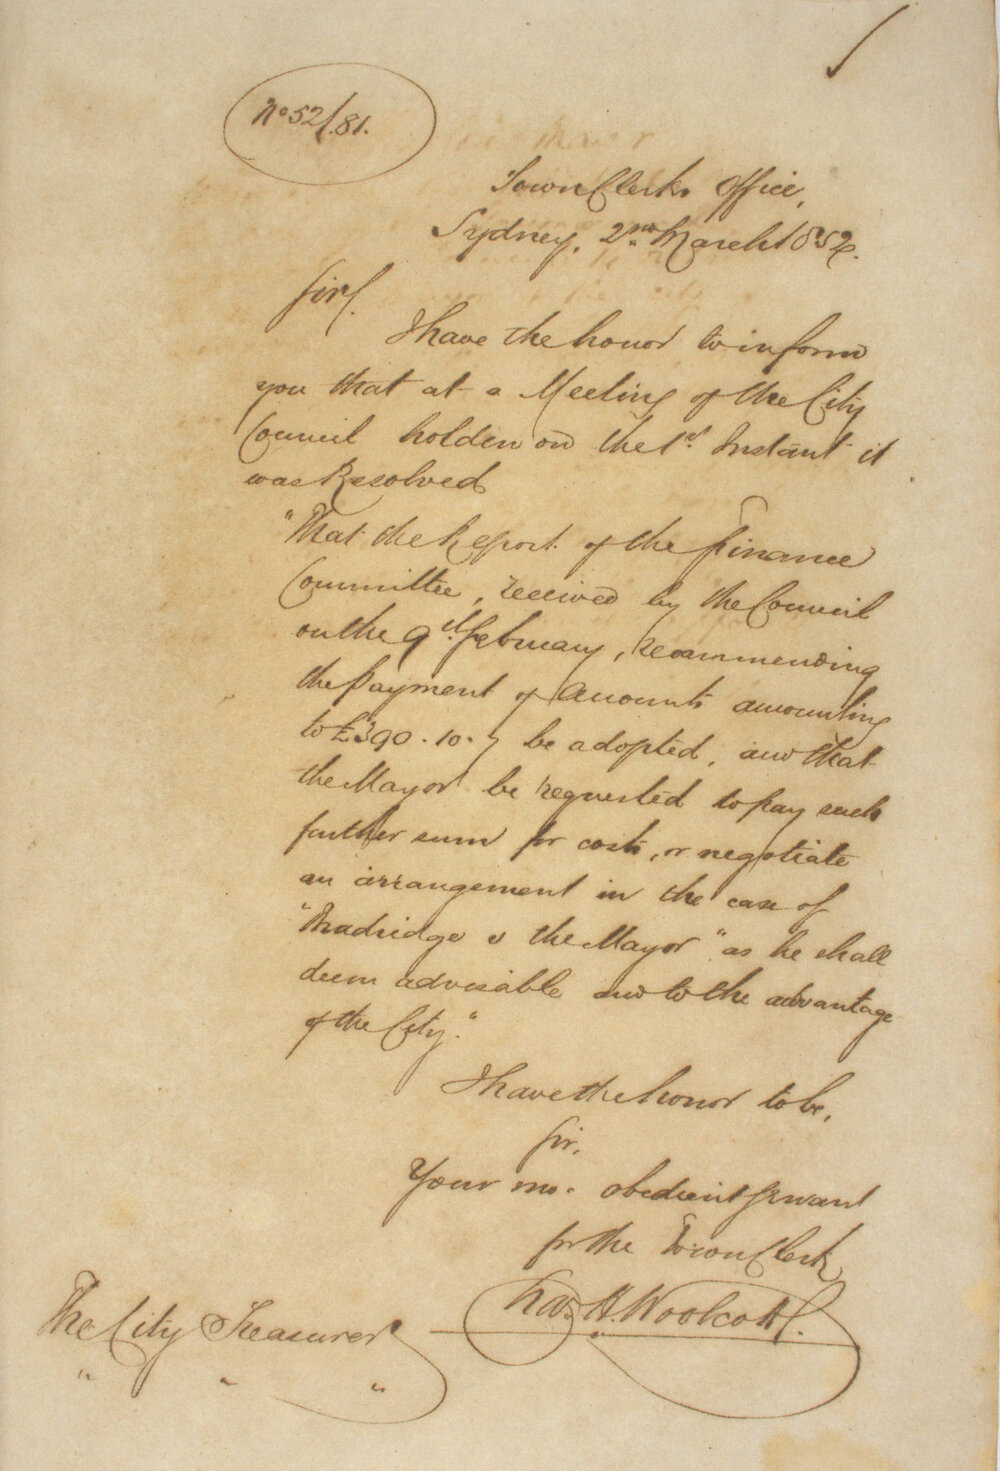 No 52/.81.
Town Clerks Office,
Sydney, 2nd March 1852.
Sir/.
I have the honor to inform
you that at a Meeting of the City
Council holden on the 1st. Instant it
was Resolved
"That the Report of the Finance
Committee, received by the Council
on the 9th. February, recommending
the payment of Accounts amounting
to £390.10.7 be adopted, and that
the Mayor be requested to pay such
further sum for costs, or negotiate
an arrangement in the case of
"Thadridge v the Mayor" as he shall
deem advisable and to the advantage
of the City."
I have the honor to be,
Sir,
Your mo. obedient Servant
for the Town Clerk
Chas. H. Woolcott.
The City Treasurer
" " "